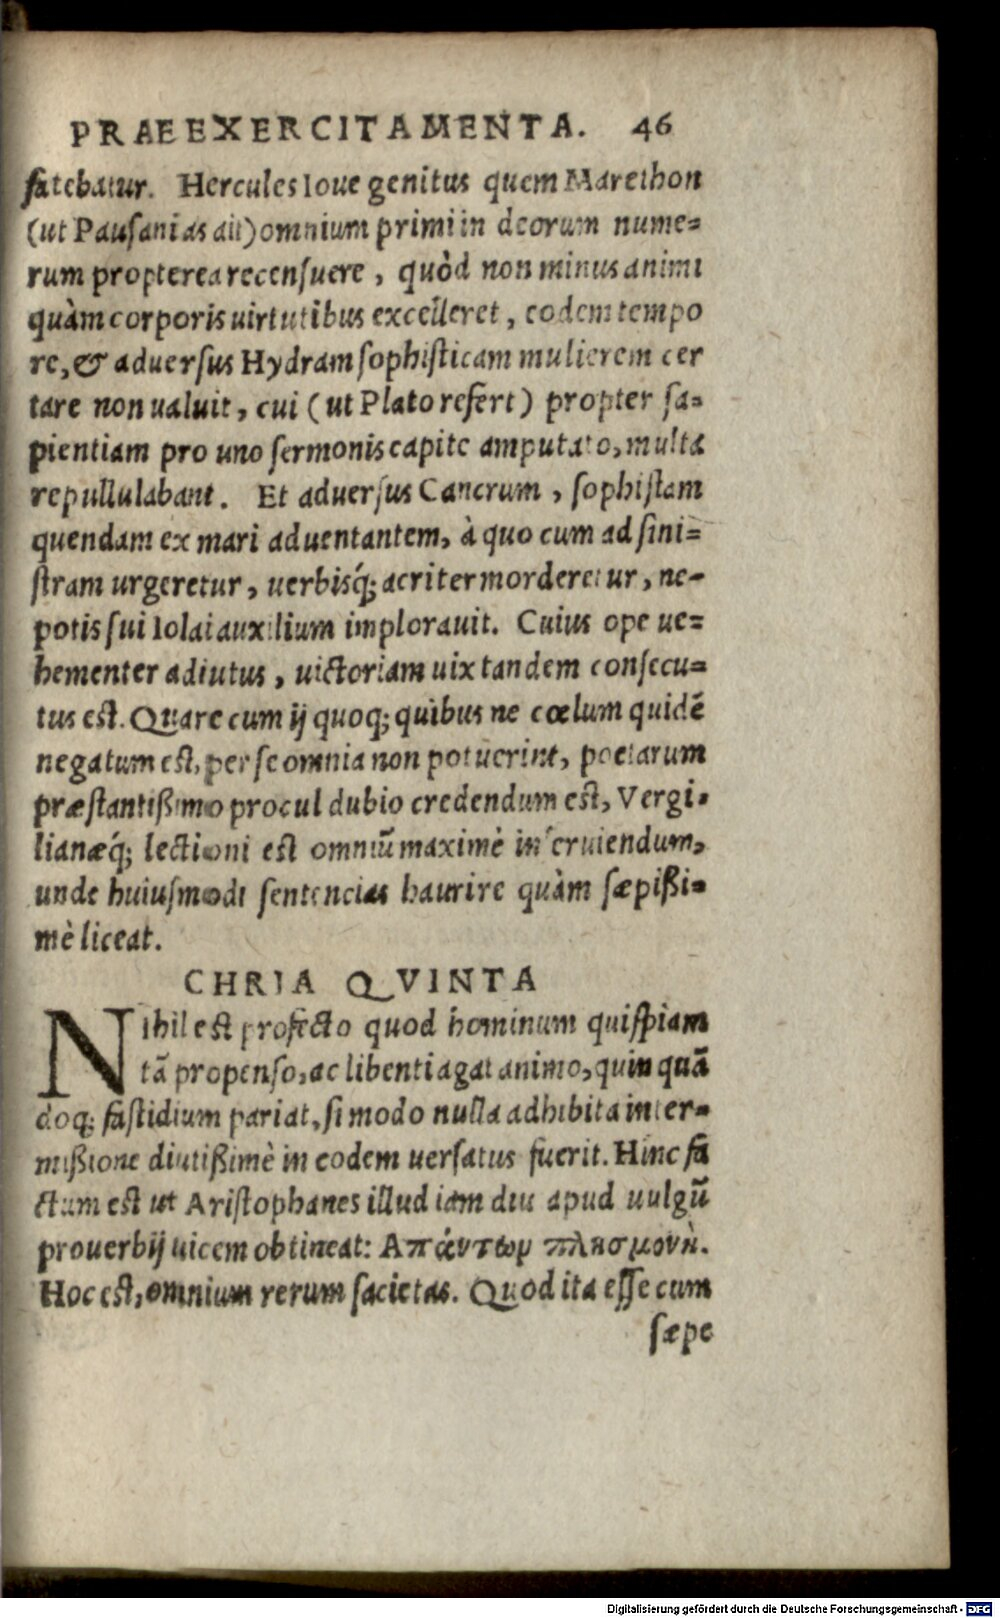 PRAEEXERCITAMENTA. 46
fatebatur. Hercules Ioue genitus quem Marethon
(ut Pausanias ait) omnium primi in deorum nume=
rum propterea recensuere, quòd non minus animi
quàm corporis uirtutibus excelleret, eodem tempo
re, & aduersus Hydram sophisticam mulierem cer
tare non ualuit, cui (ut Plato refert) propter sa=
pientiam pro uno sermonis capite amputato, multa
repullulabant. Et aduersus Cancrum, sophistam
quendam ex mari aduentantem, à quo cum ad sini=
stram urgeretur, uerbisq́; acriter morderetur, ne-
potis sui Iolai auxilium implorauit. Cuius ope ue=
hementer adiutus, uictoriam uix tandem consecu=
tus est. Quare cum ij quoq; quibus ne cœlum quidē
negatum est, per se omnia non potuerint, poetarum
præstantißimo procul dubio credendum est, Vergi=
lianæq́; lectioni est omniū maximè inseruiendum,
unde huiusmodi sentencias haurire quàm sæpißi=
mè liceat.
CHRIA QVINTA
Nihil est profecto quod hominum quispiam
tā propenso, ac libenti agat animo, quin quā
doq; fastidium pariat, si modo nulla adhibita inter=
mißione diutißimè in eodem uersatus fuerit. Hinc fa
ctum est ut Aristophanes illud iam diu apud uulgū
prouerbij uicem obtineat: Απάντωμ πλησμονὴ.
Hoc est, omnium rerum sacietas. Quod ita esse cum
sæpe
Digitalisierung gefördert durch die Deutsche Forschungsgemeinschaft - DFG